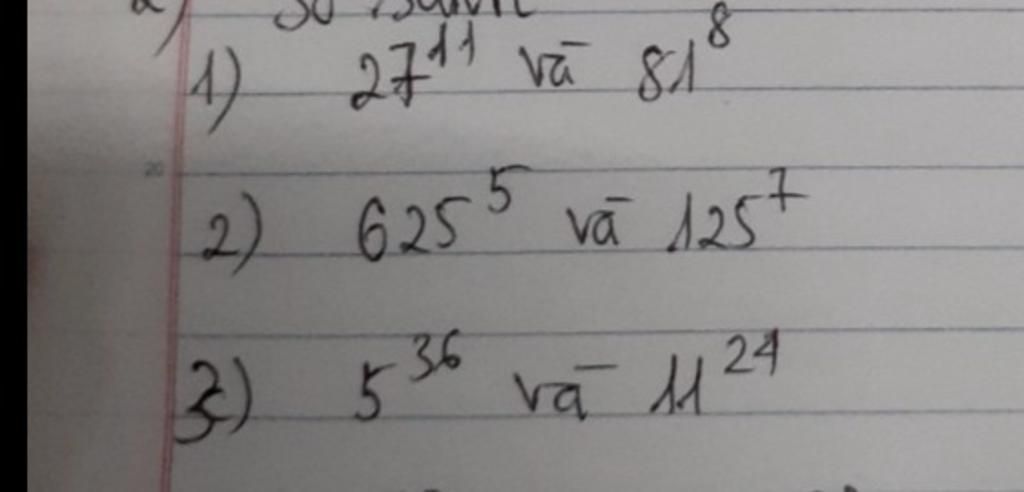 a) So sánh
1) 27¹¹ và 81⁸
20
2) 625⁵ và 125⁷
3) 5³⁶ và 11²⁴